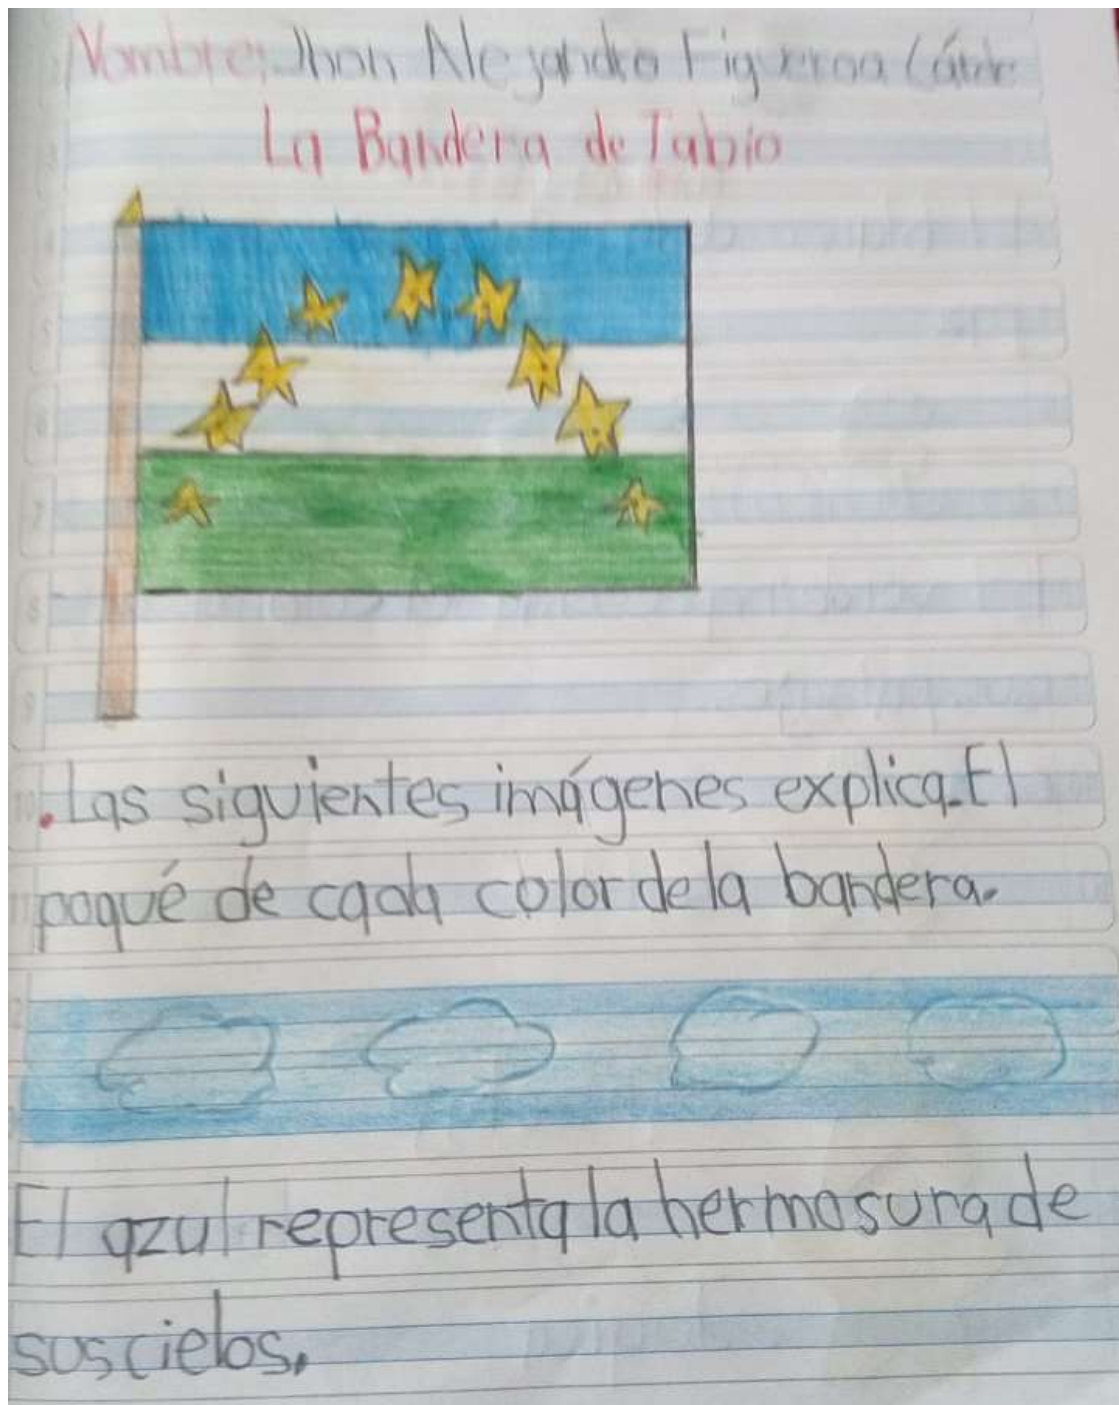 Nombre: Jhon Alejandro Figueroa
La Bandera de Tabio
. Las siguientes imágenes explica. El
poqué de cada color de la bandera.
El azul representa la hermosura de
sus cielos.